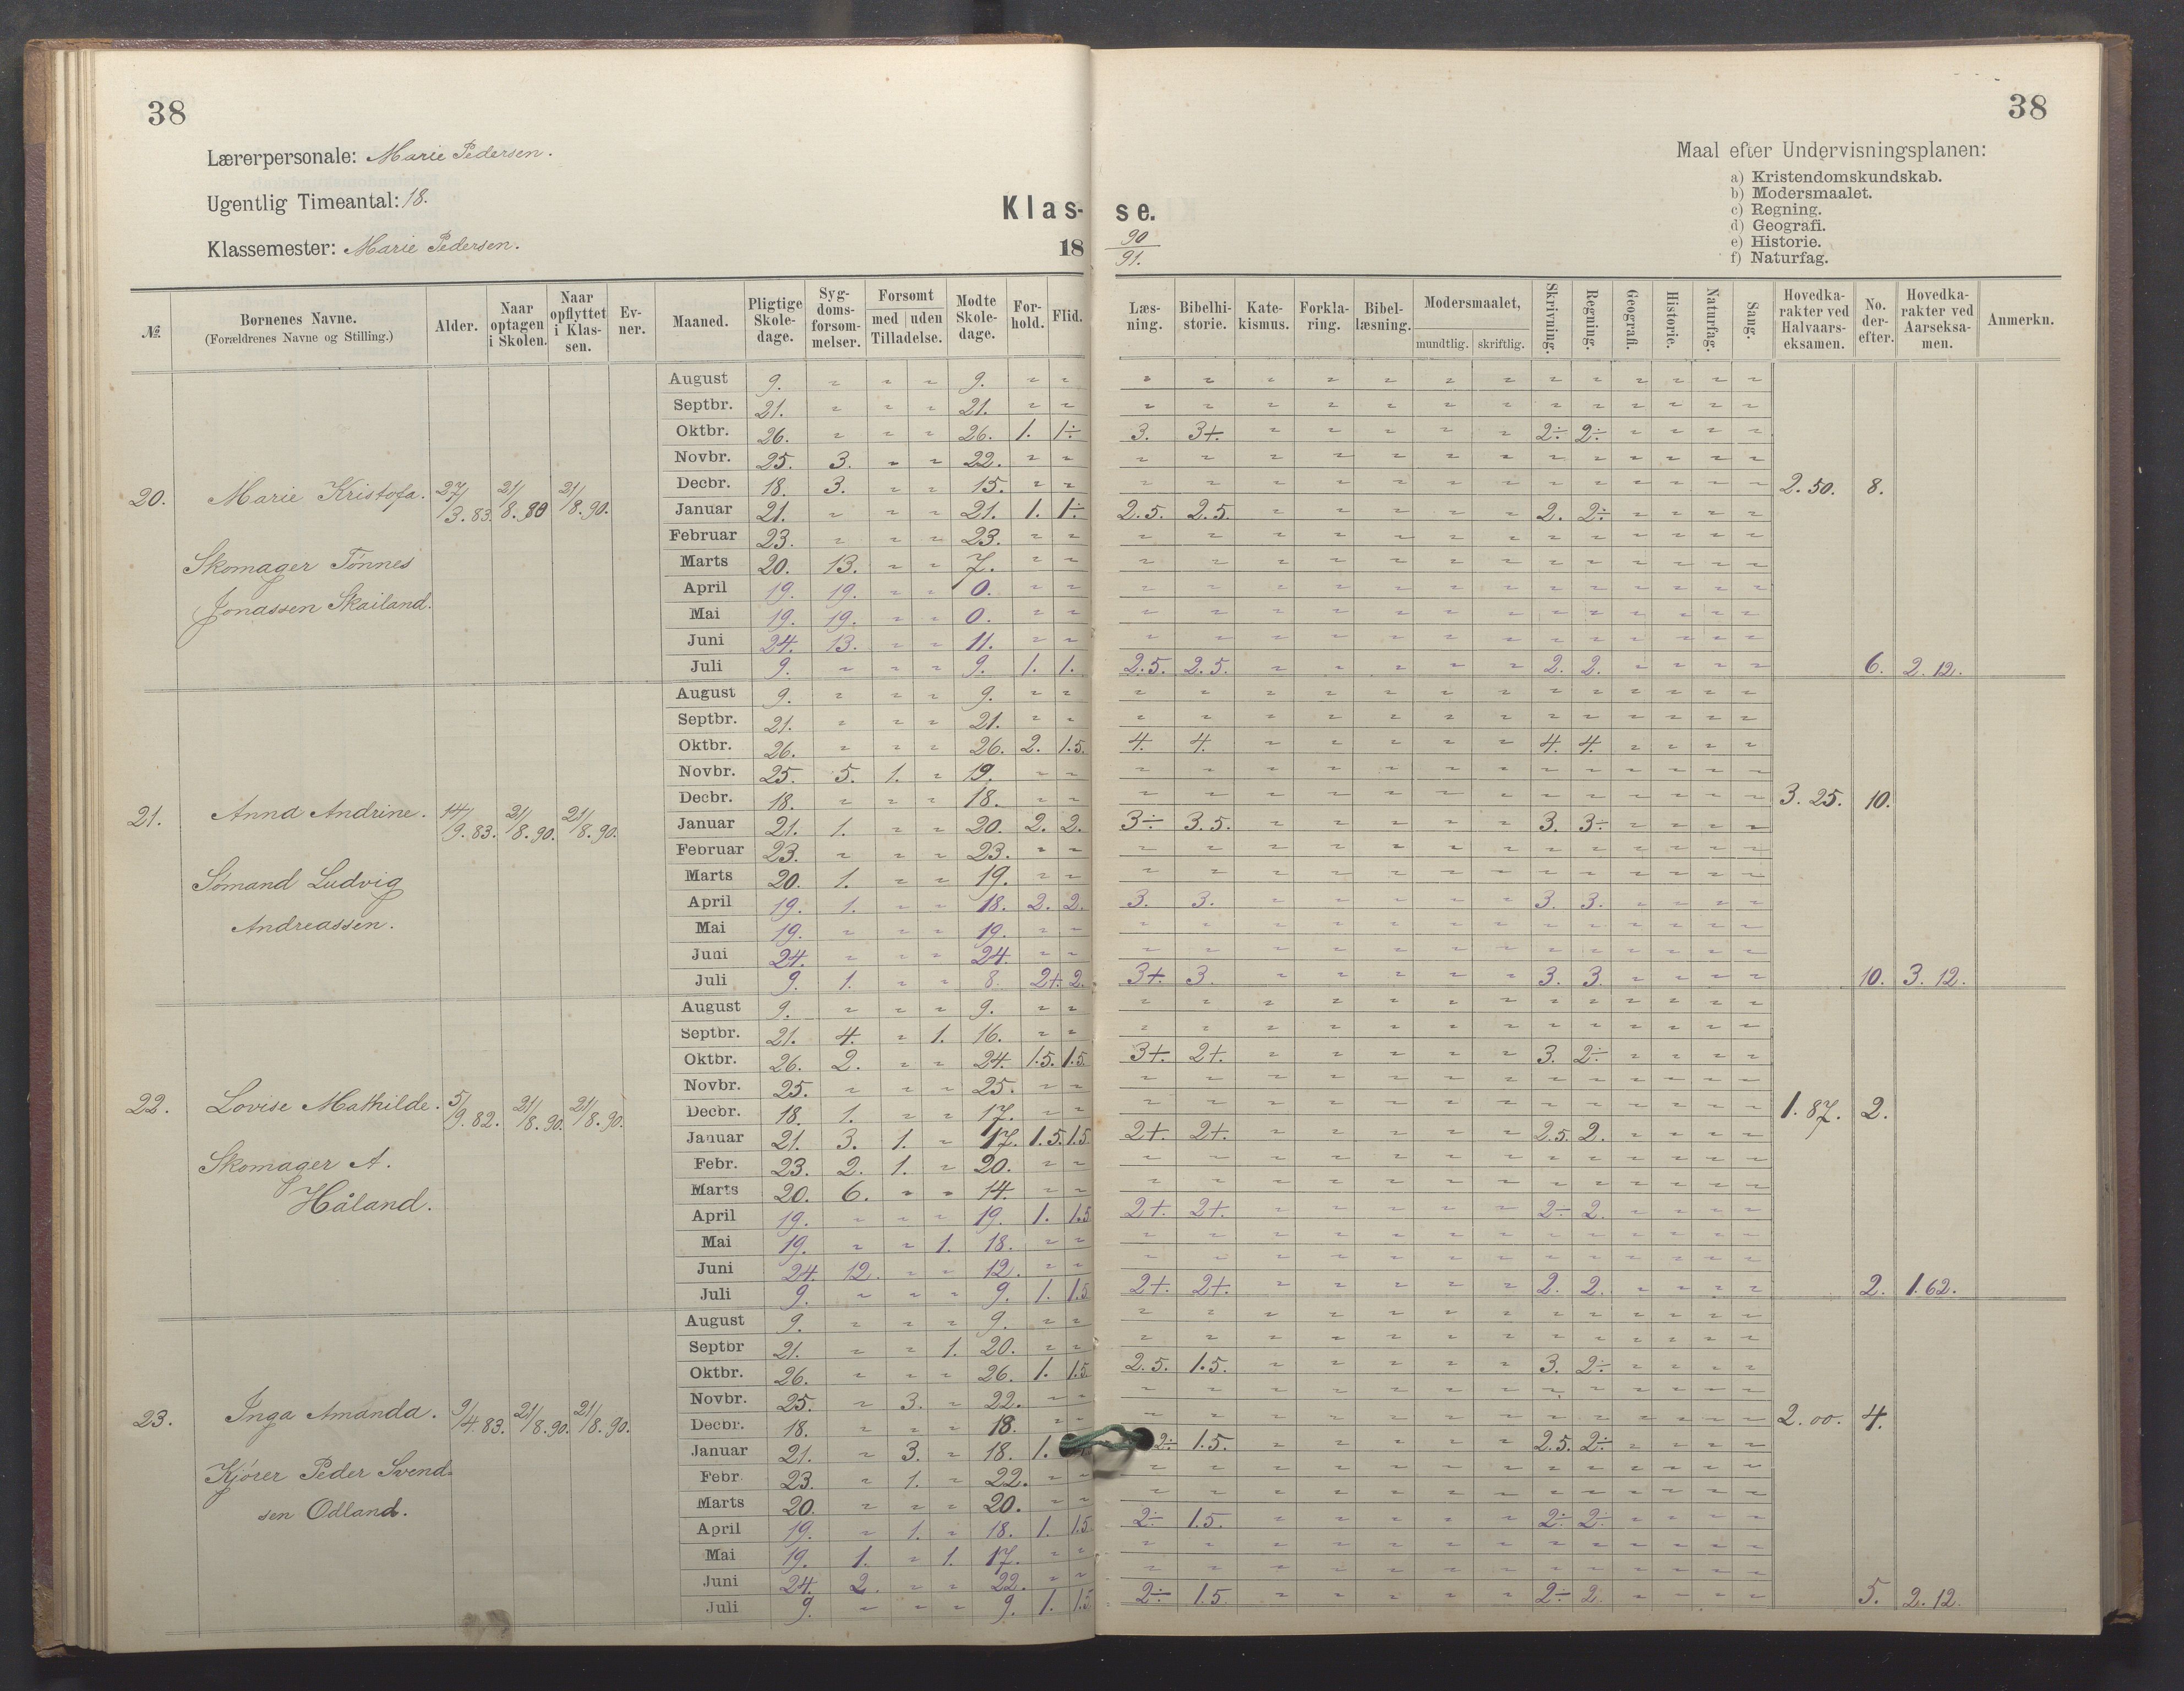 38
38
Lærerpersonale: Marie Pedersen.
Ugentlig Timeantal: 18.
Klassemester: Marie Pedersen.
Klas-
se.
18 90/91.
Maal efter Undervisningsplanen:
a) Kristendomskundskab.
b) Modersmaalet.
c) Regning.
d) Geografi.
e) Historie.
f) Naturfag.
№ | Børnenes Navne. (Forældrenes Navne og Stilling.) | Alder. | Naar optagen i Skolen. | Naar opflyttet i Klassen. | Evner. | Maaned. | Pligtige Skoledage. | Sygdomsforsømmelser. | Forsømt med Tilladelse. | uden | Mødte Skoledage. | Forhold. | Flid. | Læsning. | Bibelhistorie. | Katekismus. | Forklaring. | Bibellæsning. | Modersmaalet, mundtlig. | skriftlig. | Skrivning. | Regning. | Geografi. | Historie. | Naturfag. | Sang. | Hovedkarakter ved Halvaarseksamen. | No. derefter. | Hovedkarakter ved Aarseksamen. | Anmerkn.
20. Marie Kristofa. 27/3.83. 21/8.90 21/8.90.
Skomager Tönnes
Jonassen Skailand.
August 9. " " " 9. " " " "
Septbr. 21. " " " 21. " " " "
Oktbr. 26. " " " 26. 1. 1÷ 3. 3+. 2÷ 2÷
Novbr. 25. 3. " " 22. " " " "
Decbr. 18. 3. " " 15. " " " " 2.50. 8.
Januar 21. " " " 21. 1. 1÷ 2.5. 2.5. 2. 2÷
Februar 23. " " " 23. " " " "
Marts 20. 13. " " 7. " " " "
April 19. 19. " " 0. " " " "
Mai 19. 19. " " 0. " " " "
Juni 24. 13. " " 11. " " " "
Juli 9. " " " 9. 1. 1. 2.5. 2.5. 2. 2. 6. 2.12.
21. Anna Andrine. 14/9.83. 21/8.90. 21/8.90.
Sömand Ludvig
Andreassen.
August 9. " " " 9. " " " "
Septbr. 21. " " " 21. " " " "
Oktbr. 26. " " " 26. 2. 1.5. 4. 4. 4. 4.
Novbr. 25. 5. 1. " 19. " " " "
Decbr. 18. " " " 18. " " " " 3.25. 10.
Januar 21. 1. " " 20. 2. 2. 3÷ 3.5. 3. 3÷
Februar 23. " " " 23. " " " "
Marts 20. 1. " " 19. " " " "
April 19. 1. " " 18. 2. 2. 3. 3. 3. 3.
Mai 19. " " " 19. " " " "
Juni 24. " " " 24. " " " "
Juli 9. 1. " " 8. 2+. 2. 3+. 3. 3. 3. 10. 3.12.
22. Lovise Mathilde. 5/9.82. 21/8.90. 21/8.90.
Skomager A.
Håland.
August 9. " " " 9. " " " "
Septbr. 21. 4. " 1. 16. " " " "
Oktbr. 26. 2. " " 24. 1.5. 1.5. 3+. 2+. 3. 2÷
Novbr. 25. " " " 25. " " " "
Decbr. 18. 1. " " 17. " " " " 1.87. 2.
Januar 21. 3. 1. " 17. 1.5. 1.5 2+. 2+. 2.5. 2.
Febr. 23. 2. 1. " 20. " " " "
Marts 20. 6. " " 14. " " " "
April 19. " " " 19. 1. 1.5 2+. 2+. 2÷ 2.
Mai 19. " " 1. 18. " " " "
Juni 24. 12. " " 12. " " " "
Juli 9. " " " 9. 1. 1.5 2+. 2+. 2. 2. 2. 1.62.
23. Inga Amanda. 9/4.83. 21/8.90. 21/8.90.
Kjörer Peder Svend-
sen Odland.
August 9. " " " 9. " " " "
Septbr 21. " " 1. 20. " " " "
Oktbr. 26. " " " 26. 1. 1.5. 2.5. 1.5. 3. 2÷
Novbr. 25. " 3. " 22. " " " "
Decbr. 18. " " " 18. " " " " 2.00. 4.
Januar 21. " 3. " 18. 1. 2÷ 1.5. 2.5. 2÷
Febr 23. " 1. " 22. " " " "
Marts 20. " " " 20. " " " "
April 19. " 1. " 18. 1. 1.5 2÷ 1.5. 2÷ 2÷
Mai 19. 1. " 1. 17. " " " "
Juni 24. 2. " " 22. " " " "
Juli 9. " " " 9. 1. 1.5 2÷ 1.5. 2÷ 2. 5. 2.12.